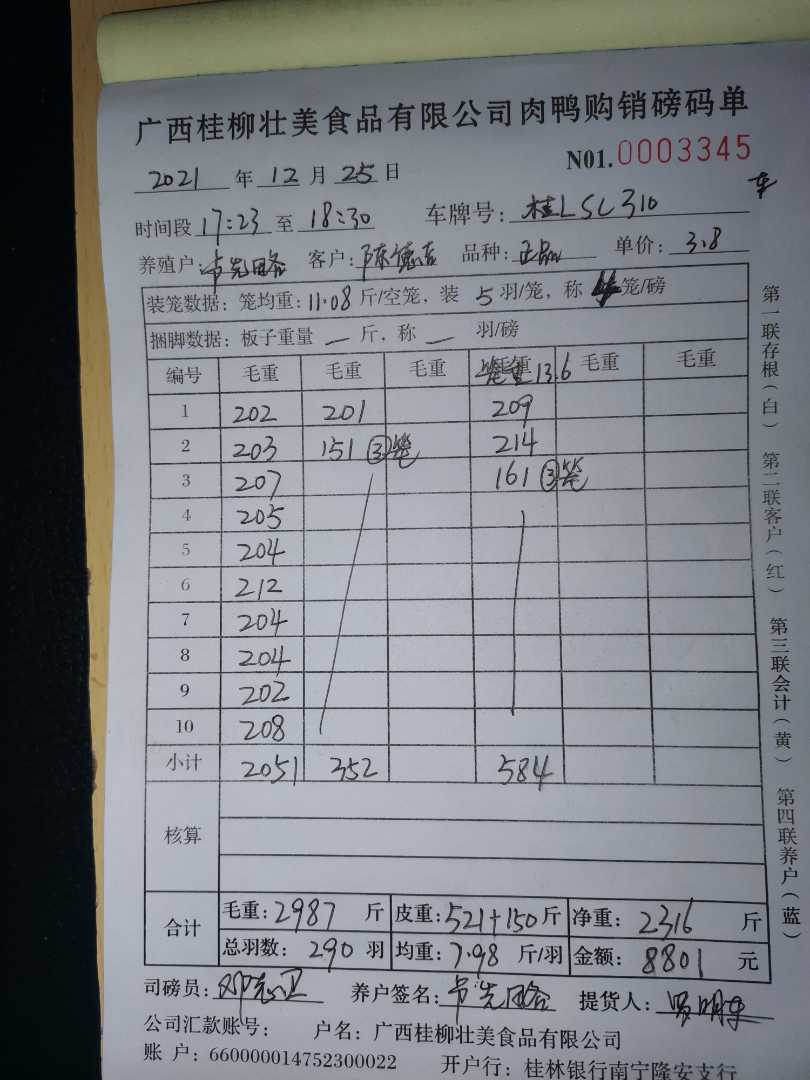 广西桂柳壮美食品有限公司肉鸭购销磅码单
2021 年 12 月 25 日 N01.0003345
时间段 17:23 至 18:30 车牌号: 桂LSC310 车
养殖户: 韦先略 客户: 陈德吉 品种: 正品 单价: 3.8
装笼数据: 笼均重: 11.08 斤/空笼, 装 5 羽/笼, 称 4 笼/磅
捆脚数据: 板子重量 — 斤, 称 — 羽/磅
编号 毛重 毛重 毛重 毛重 笼重13.6 毛重 毛重
1 202 201 209
2 203 151 ③笼 214
3 207 161 ③笼
4 205
5 204
6 212
7 204
8 204
9 202
10 208
小计 2051 352 584
核算
合计 毛重: 2987 斤 皮重: 521+150 斤 净重: 2316 斤
总羽数: 290 羽 均重: 7.98 斤/羽 金额: 8801 元
司磅员: 邓志卫 养户签名: 韦先略 提货人: 罗明
公司汇款账号: 户名: 广西桂柳壮美食品有限公司
账 户: 660000014752300022 开户行: 桂林银行南宁隆安支行
第一联存根(白) 第二联客户(红) 第三联会计(黄) 第四联养户(蓝)